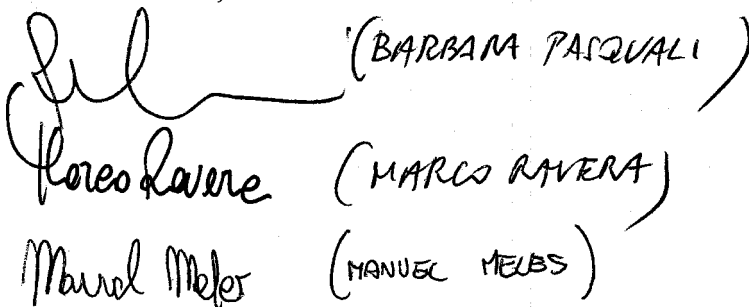 (BARBARA PASQUALI)
Marco Ravera (MARCO RAVERA)
Manuel Meles (MANUEL MELES)